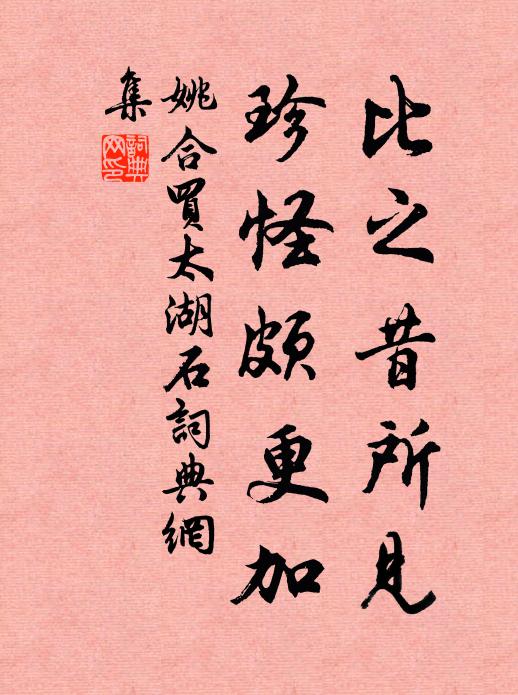 比之昔所見
珍怪頗更加
姚合買太湖石詞典網
集
詞典
网印